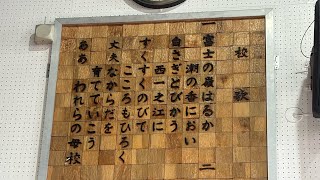 校歌
一 富士の嶺はるか
潮の香におい
白さぎとびかう
西一之江に
すくすくのびて
こころもひろく
丈夫なからだを
育てていこう
ああ われらの母校
二